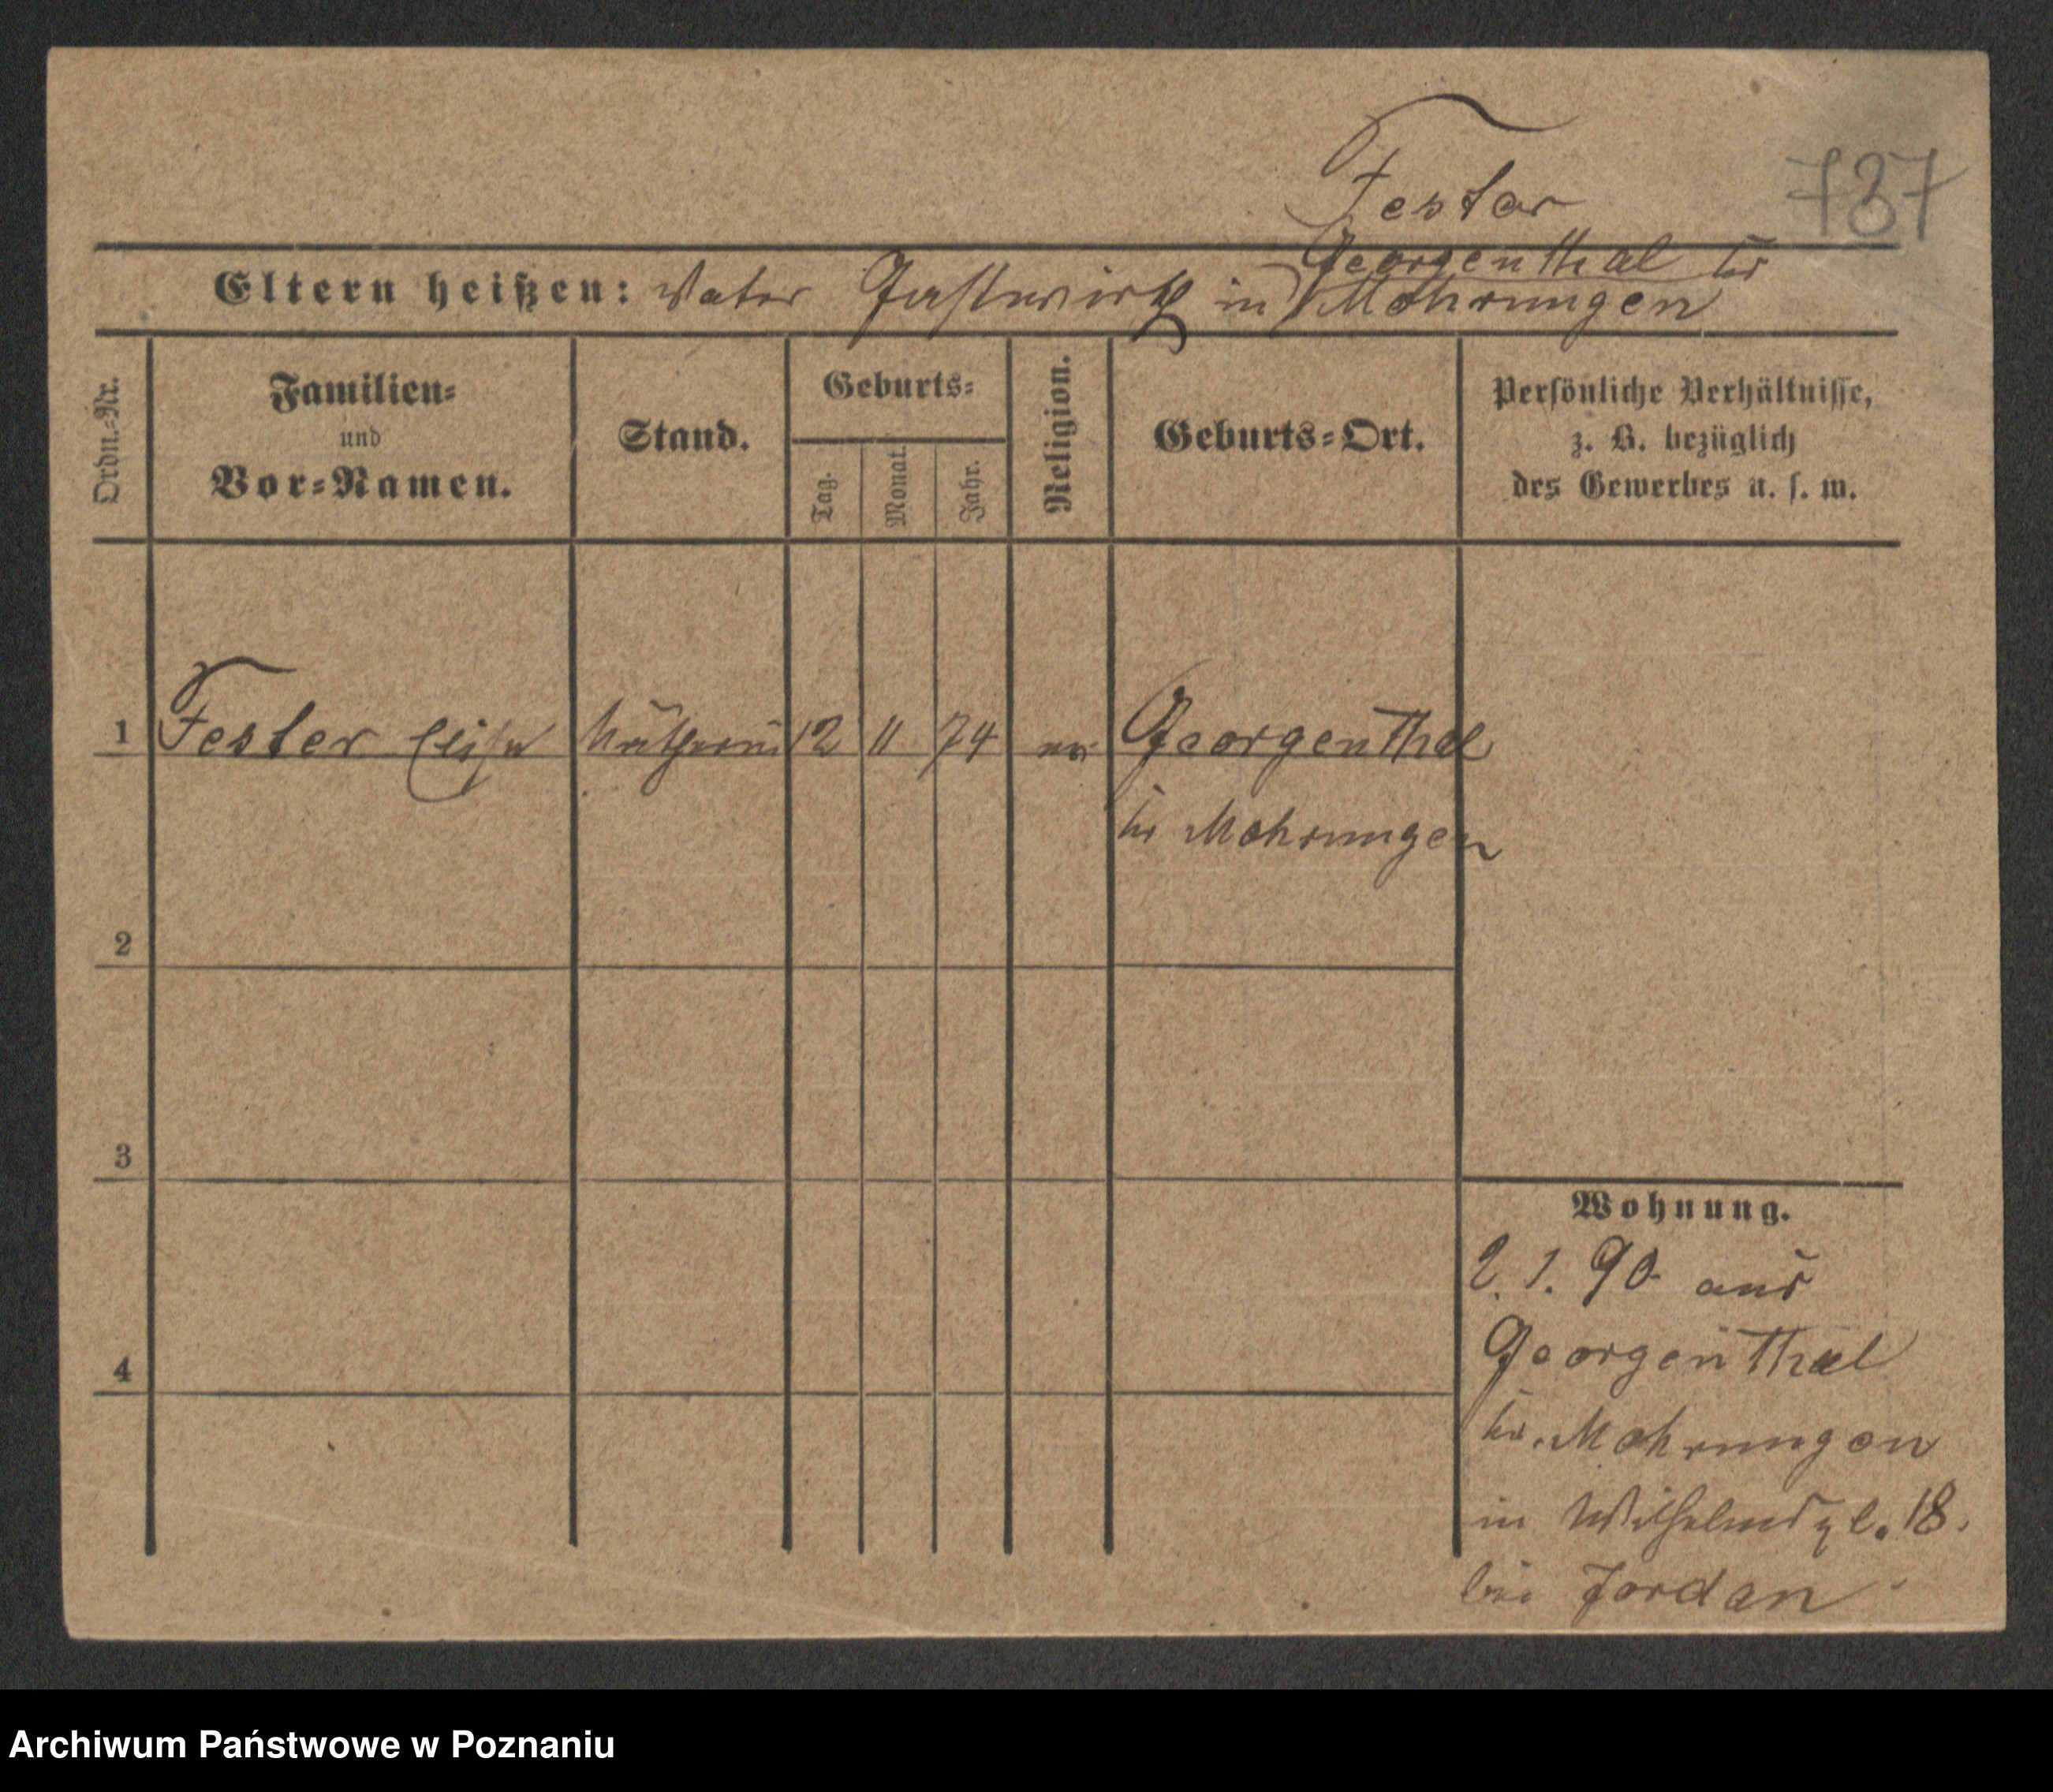 Fester
737
Georgenthal Kr
Eltern heißen: Vater Gastwirth in Mohrungen
Ordn.-Nr.
Familien-
und
Vor-Namen.
Stand.
Geburts-
Tag.
Monat.
Jahr.
Religion.
Geburts-Ort.
Persönliche Verhältnisse,
z. B. bezüglich
des Gewerbes u. s. w.
1 Fester Elise 12 11 74 ev Georgenthal
Kr Mohrungen
2
3
4
Wohnung.
2. 1. 90 aus
Georgenthal
Kr. Mohrungen
in Wilhelmspl. 18.
bei Jordan
Archiwum Państwowe w Poznaniu